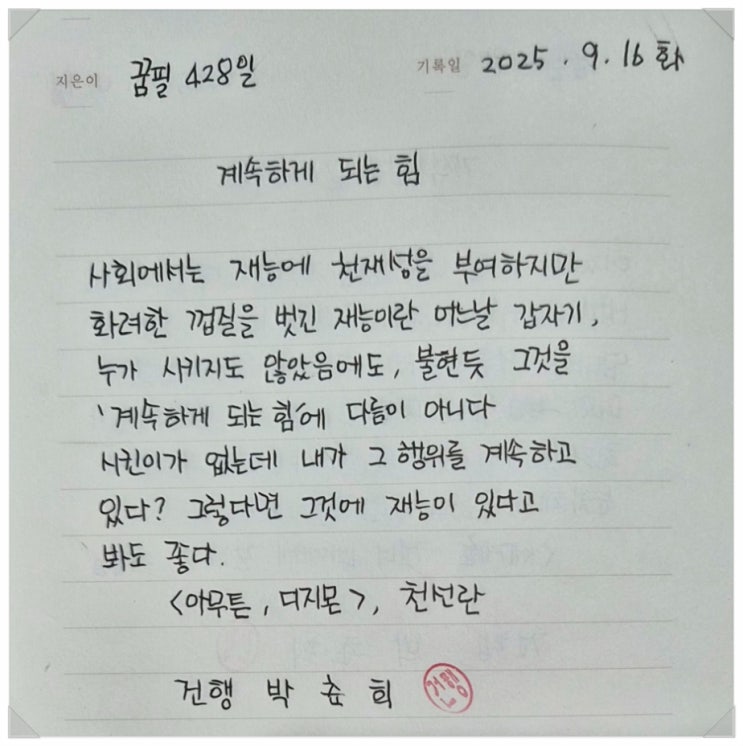 지은이 꿈필 428일 기록일 2025. 9. 16 화
계속하게 되는 힘
사회에서는 재능에 천재성을 부여하지만
화려한 껍질을 벗긴 재능이란 어느날 갑자기,
누가 시키지도 않았음에도, 불현듯 그것을
'계속하게 되는 힘'에 다름이 아니다
시킨이가 없는데 내가 그 행위를 계속하고
있다? 그렇다면 그것에 재능이 있다고
봐도 좋다.
<아무튼, 디지몬>, 천선란
건행 박춘희 건행